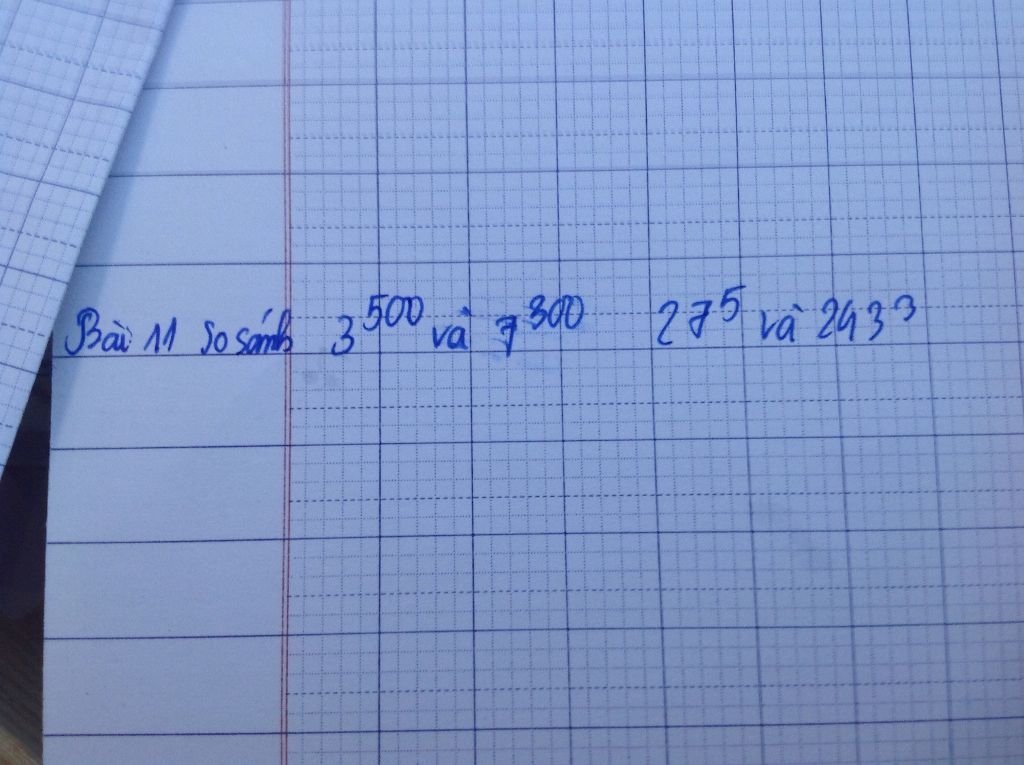 Bài 11 so sánh 3⁵⁰⁰ và 7³⁰⁰ 27⁵ và 243³